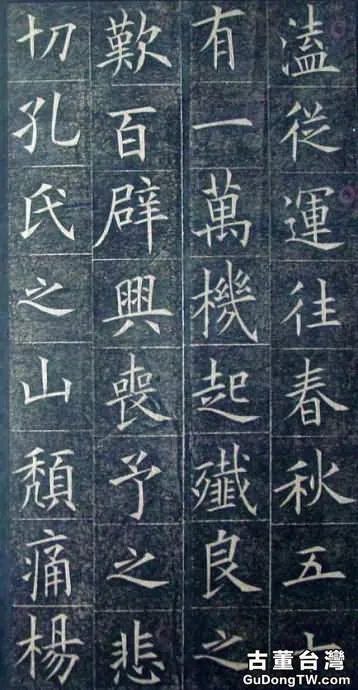 溘從運往春秋五十
有一萬機起殲良之
歎百辟興喪予之悲
切孔氏之山頹痛楊
古董台灣
GuDongTW.com